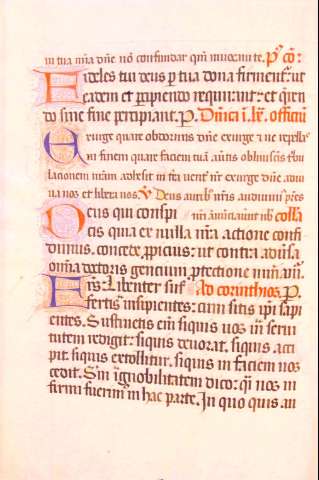 in tua mīa dn̄e nō confundar qm̄ inuocaui te. P̄ cō:
Fideles tui deus per tua dona firment̄: ut
eadem et percipiendo requirant: et queren
do sine fine percipiant. P. Dn̄ica
Exurge quare obdormis dn̄e exurge et ne repellas
in finem quare faciem tuā auertis obliuisceris tribu
lationem nr̄am adhesit in terra uent̄ nr̄ exurge dn̄e adiu
ua nos et libera nos. V Deus auribus nr̄is audiuimus patres
Deus qui conspi nr̄i annunciauerunt nob̄ coll̄a
cis quia ex nulla nr̄a actione confi
dimus. concede propicius: ut contra aduersa
omnia doctoris gencium protectione muniamur.
Frēs: Libenter suff Ad corinthios. P.
fertis insipientes: cum sitis ipsi sapi
entes. Sustinetis enim siquis uos in serui
tutem redigit: siquis deuorat. siquis acci
pit. siquis extollitur. siquis in faciem uos
cedit. Sm̄ ignobilitatem dico: q̄si nos in
firmi fuerim̄ in hac parte. In quo quis au